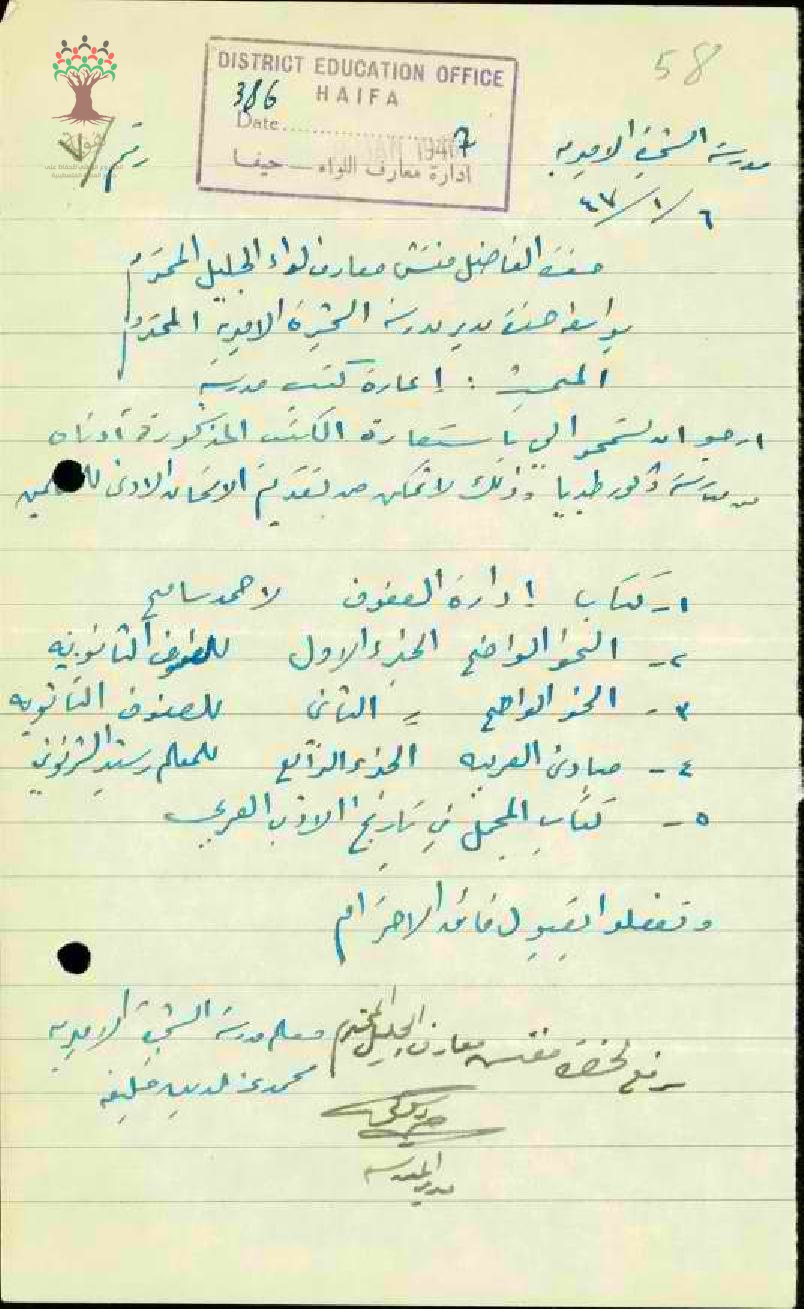 58
DISTRICT EDUCATION OFFICE
HAIFA
386
Date
JAN 1947
ادارة معارف اللواء — حيفا
مدرسة الشجرة الاميرية
رقم ٧/
٦/١/٤٧
حضرة الفاضل مفتش معارف لواء الجليل المحترم
بواسطة حضرة مدير مدرسة الشجرة الاميرية المحترم
المبحث : إعارة كتب مدرسية
ارجو ان تسمحوا لي باستعارة الكتب المذكورة أدناه
من مدرسة طبريا وذلك لاتمكن من تقديم الامتحان الادنى للمعلمين
١- كتاب إدارة الصفوف لاحمد سامح
٢- النحو الواضح الجزء الاول للصفوف الثانوية
٣- النحو الواضح = الثاني للصفوف الثانوية
٤- مبادئ العربية الجزء الرابع للمعلم رشيد الشرتوني
٥- كتاب المجمل في تاريخ الادب العربي
وتفضلوا بقبول فائق الاحترام
معلم مدرسة الشجرة الاميرية
محمد عز الدين خليفه
ترفع لحضرة مفتش معارف الجليل المحترم
مدير المدرسة